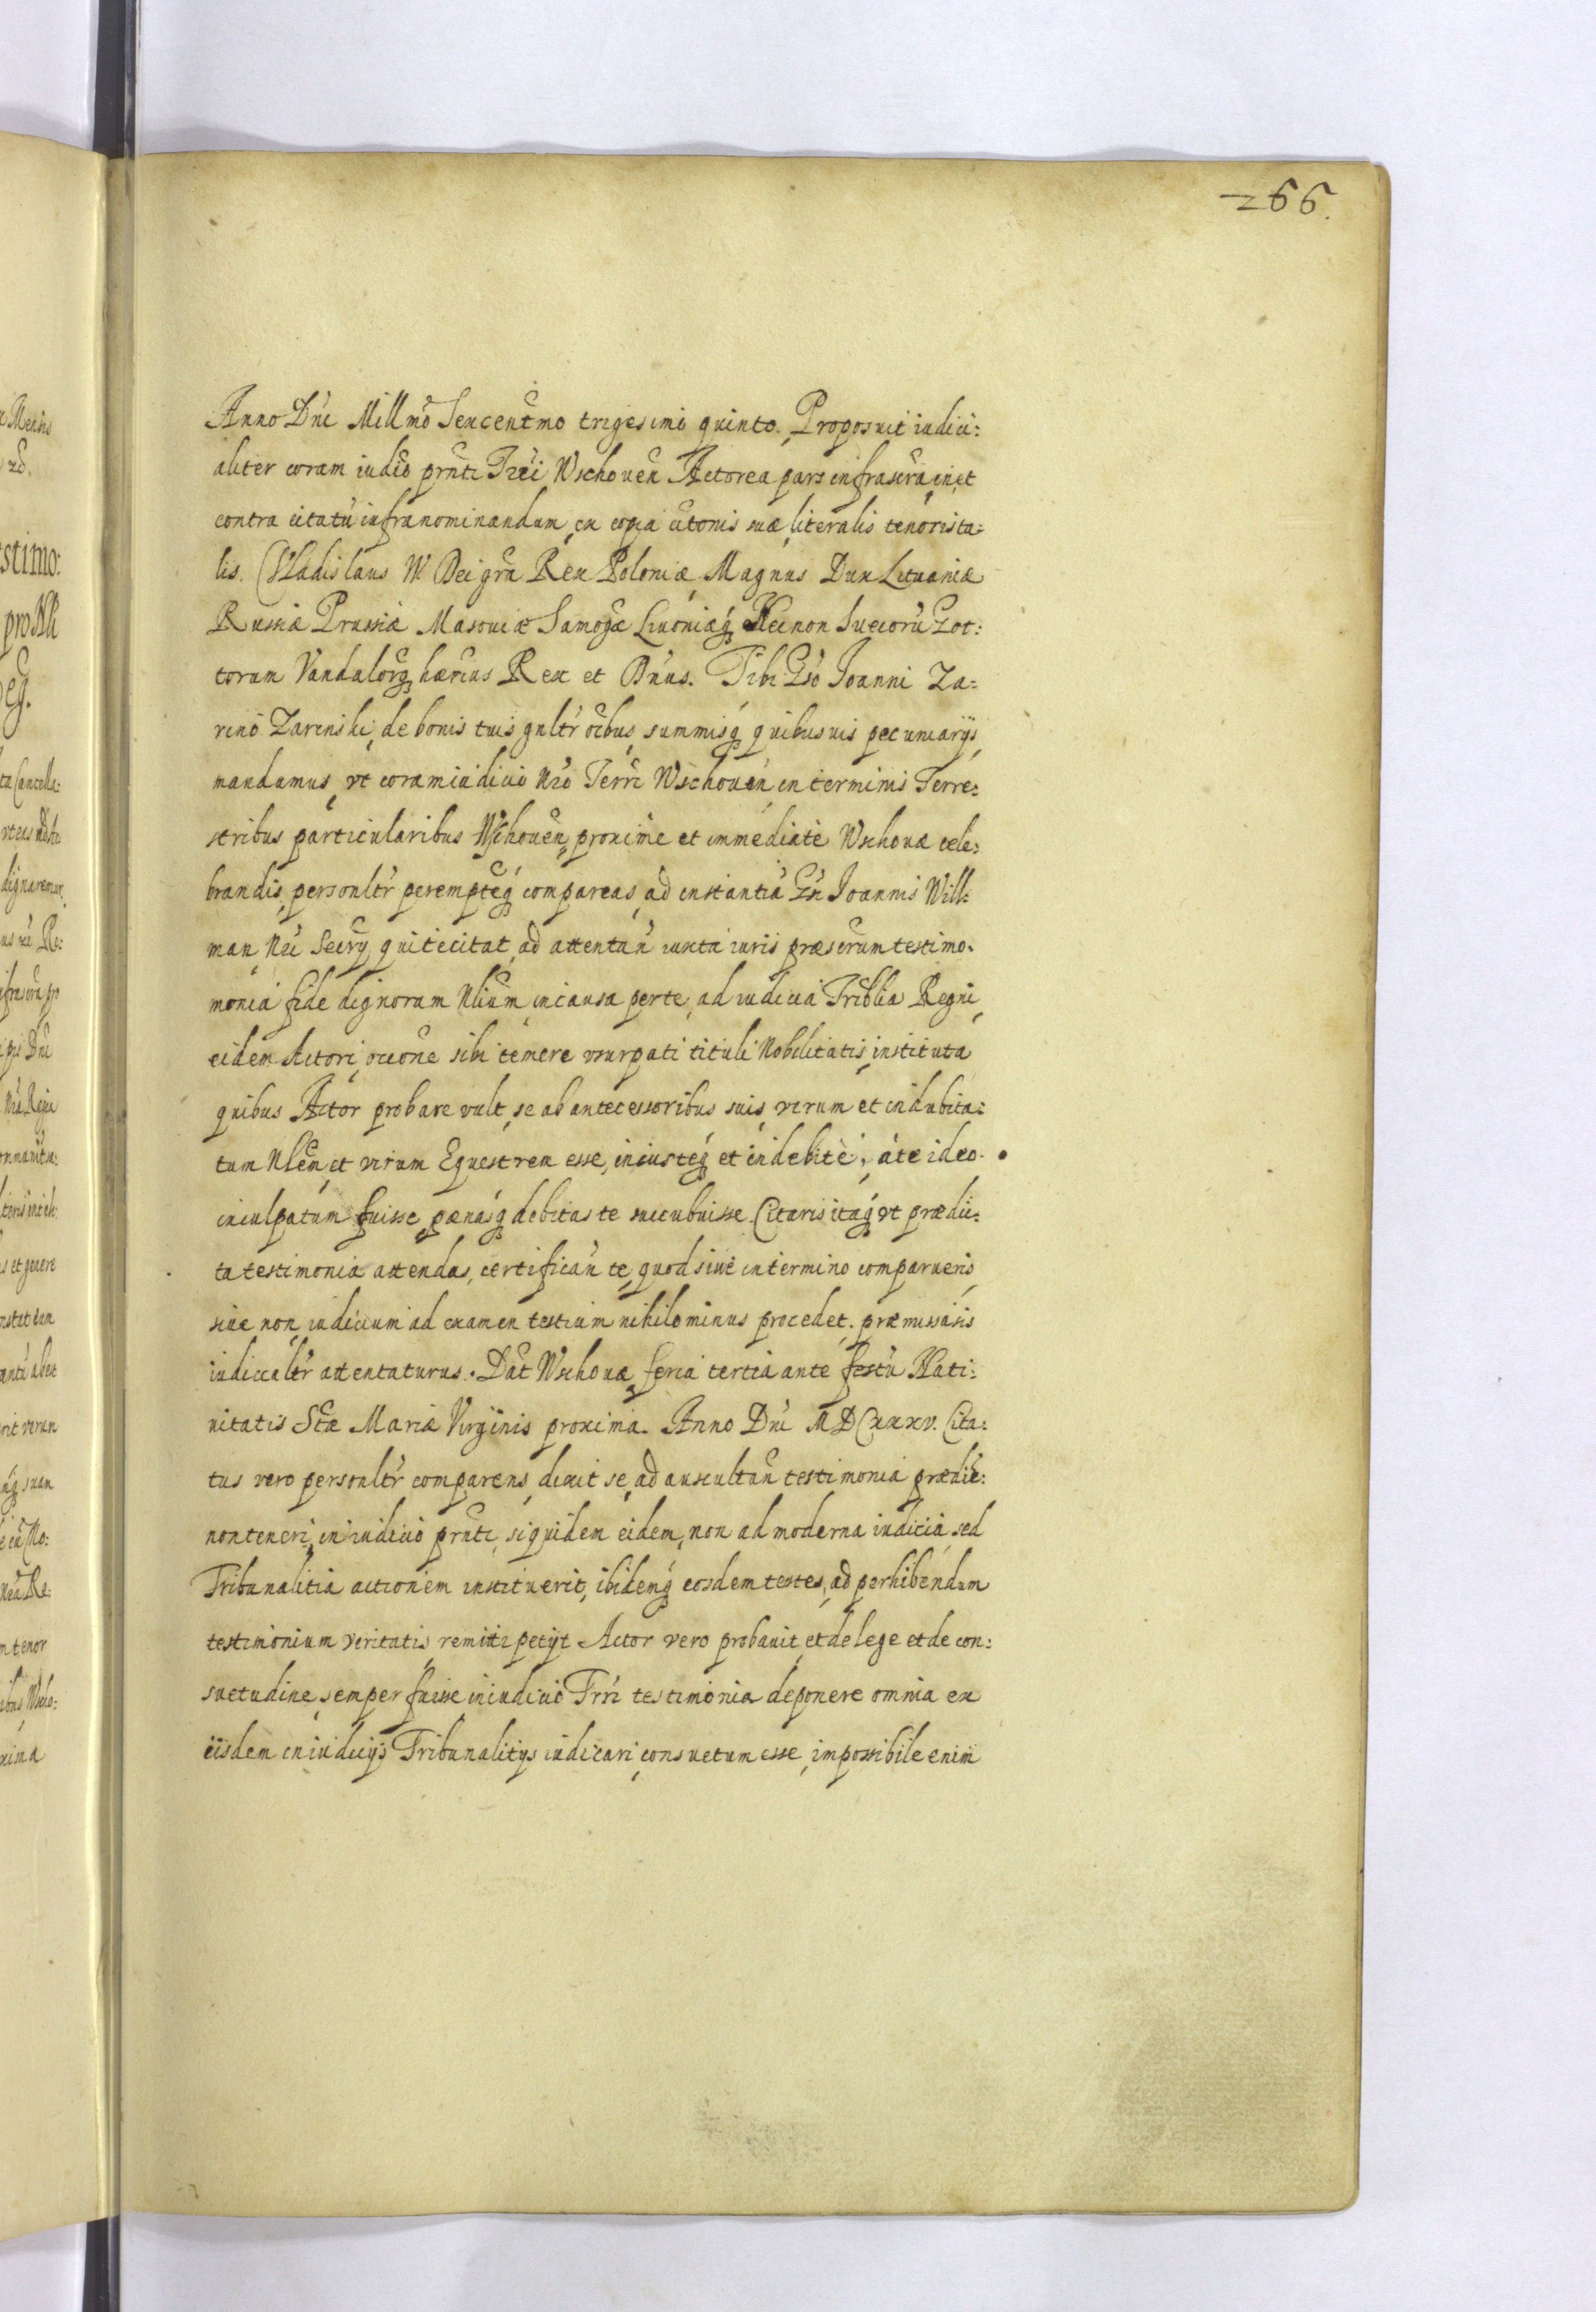 266.
Anno Dni Millmo Sexcentmo trigesimo quinto. Proposuit iudici:
aliter coram iudio prnti Trri Wschouen Actorea pars infrascra, in et
contra citatu infranominandum, ex copia citonis suæ, literalis tenoris ta:
lis. Vladislaus IV. Dei gra Rex Poloniæ Magnus Dux Lituaniæ
Russiæ Prussiæ Masouiæ Samogæ Liuoniæq Necnon Suecoru Got:
torum Vandalorq hærius Rex et Dnus. Tibi Gso Joanni Za:
rino Zarinski, de bonis tuis gnltr oibus, summisq quibusuis pecuniarijs,
mandamus, vt coram iudicio Nro Terri Wschouen in terminis Terre:
stribus particularibus Wschouen, proxime et immediate Wschouæ cele:
brandis, personltr perempteq compareas, ad instantia Gn Joannis Will:
man Nri Secrij, qui te citat, ad attentan iuxta iuris præscrum testimo:
monia fide dignorum Nlium, in causa per te, ad iudicia Triblia Regni,
eidem Actori, occone sibi temere vsurpati tituli Nobilitatis, instituta
quibus Actor probare vult, se ab antecessoribus suis, verum et indubita:
tum Nlem, et virum Equestrem esse, iniusteq et indebite, a te ideo.
inculpatum fuisse, pænasq debitas te succubuisse. Citaris itaq vt prædic:
ta testimonia attendas, certifican te, quod siue in termino comparueris,
siue non, iudicium ad examen testium nihilominus procedet. præmissis is
iudiccaltr attentaturus. Dat Wschouæ feria tertia ante festu Nati:
uitatis Stæ Mariæ Virginis proxima. Anno Dni MDCxxxv. Cita:
tus vero personltr comparens, dixit se, ad auscultan testimonia prædic:
non teneri, in iudicio prnti, siquidem eidem, non ad moderna iudicia, sed
Tribunalitia actionem instituerit, ibidemq eosdem testes, ad perhibendum
testimonium veritatis, remitti petijt Actor vero probauit, et de lege et de con:
suetudine, semper fuisse in iudicio Trri testimonia deponere omnia ex
iisdem in iudicijs Tribunalitijs iudicari, consuetum esse, impossibile enim